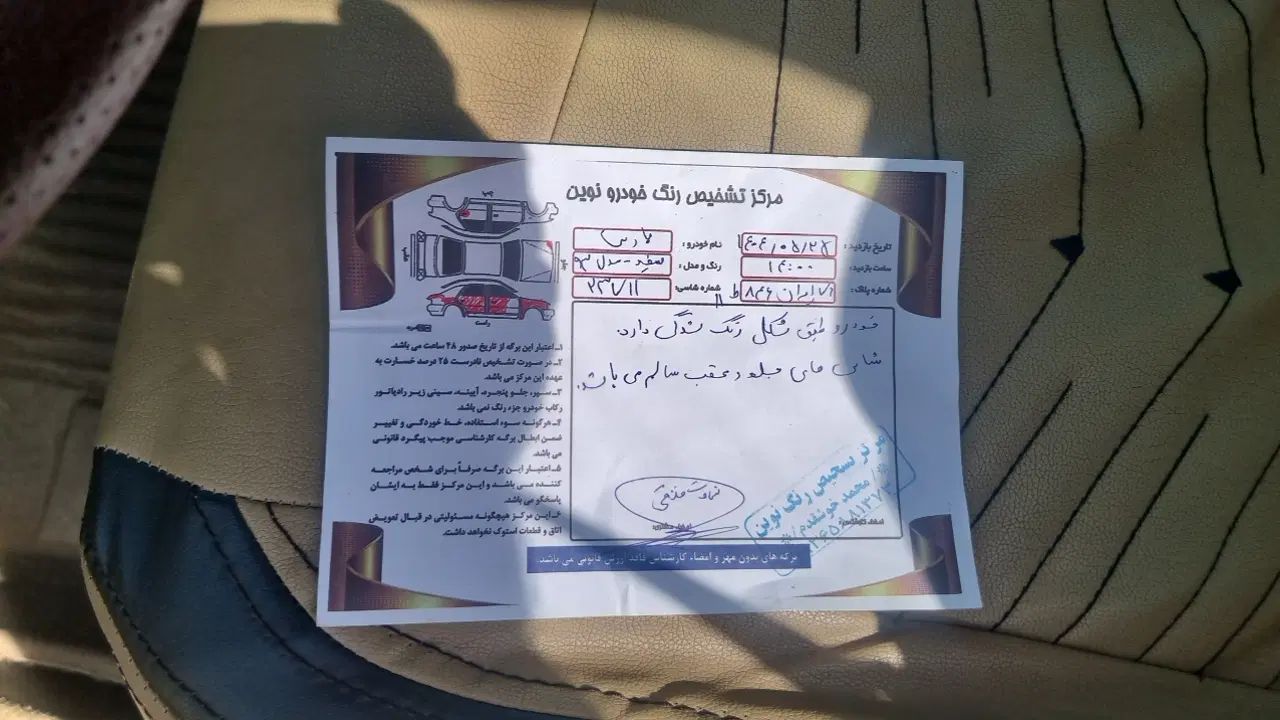 مرکز تشخیص رنگ خودرو نوین
چپ
تاریخ بازدید : نام خودرو : پارس
ساعت بازدید : ۱۴:۰۰ رنگ و مدل : سفید - مدل
شماره پلاک : ایران ۸۴۶ ط شماره شاسی: ۲۳۷۱۱
راست
خودرو طبق شکل رنگ شدگی دارد.
شاسی های جلو و عقب سالم می باشد.
۱ـ اعتبار این برگه از تاریخ صدور ۴۸ ساعت می باشد.
۲ـ در صورت تشخیص نادرست ۲۵ درصد خسارت به
عهده این مرکز می باشد.
۳ـ سپر، جلو پنجره، آیینه، سینی زیر رادیاتور
رکاب خودرو جزء رنگ نمی باشد.
۴ـ هرگونه سوء استفاده، خط خوردگی و تغییر
ضمن ابطال برگه کارشناسی موجب پیگرد قانونی
می باشد.
۵ـ اعتبار این برگه صرفاً برای شخص مراجعه
کننده می باشد و این مرکز فقط به ایشان
پاسخگو می باشد.
۶ـ این مرکز هیچگونه مسئولیتی در قبال تعویض
اتاق و قطعات استوک نخواهد داشت.
مرکز تشخیص رنگ نوین
محمد خوشقدم
برگه های بدون مهر و امضاء کارشناس فاقد ارزش قانونی می باشد.